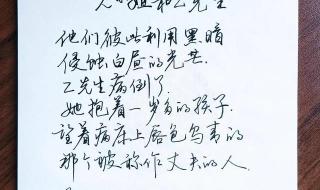 小姐和乙先生
他们彼此利用黑暗
侵蚀白昼的光芒.
乙先生病倒了.
她抱着一岁多的孩子.
望着病床上唇色乌青的
那个被称作丈夫的人.